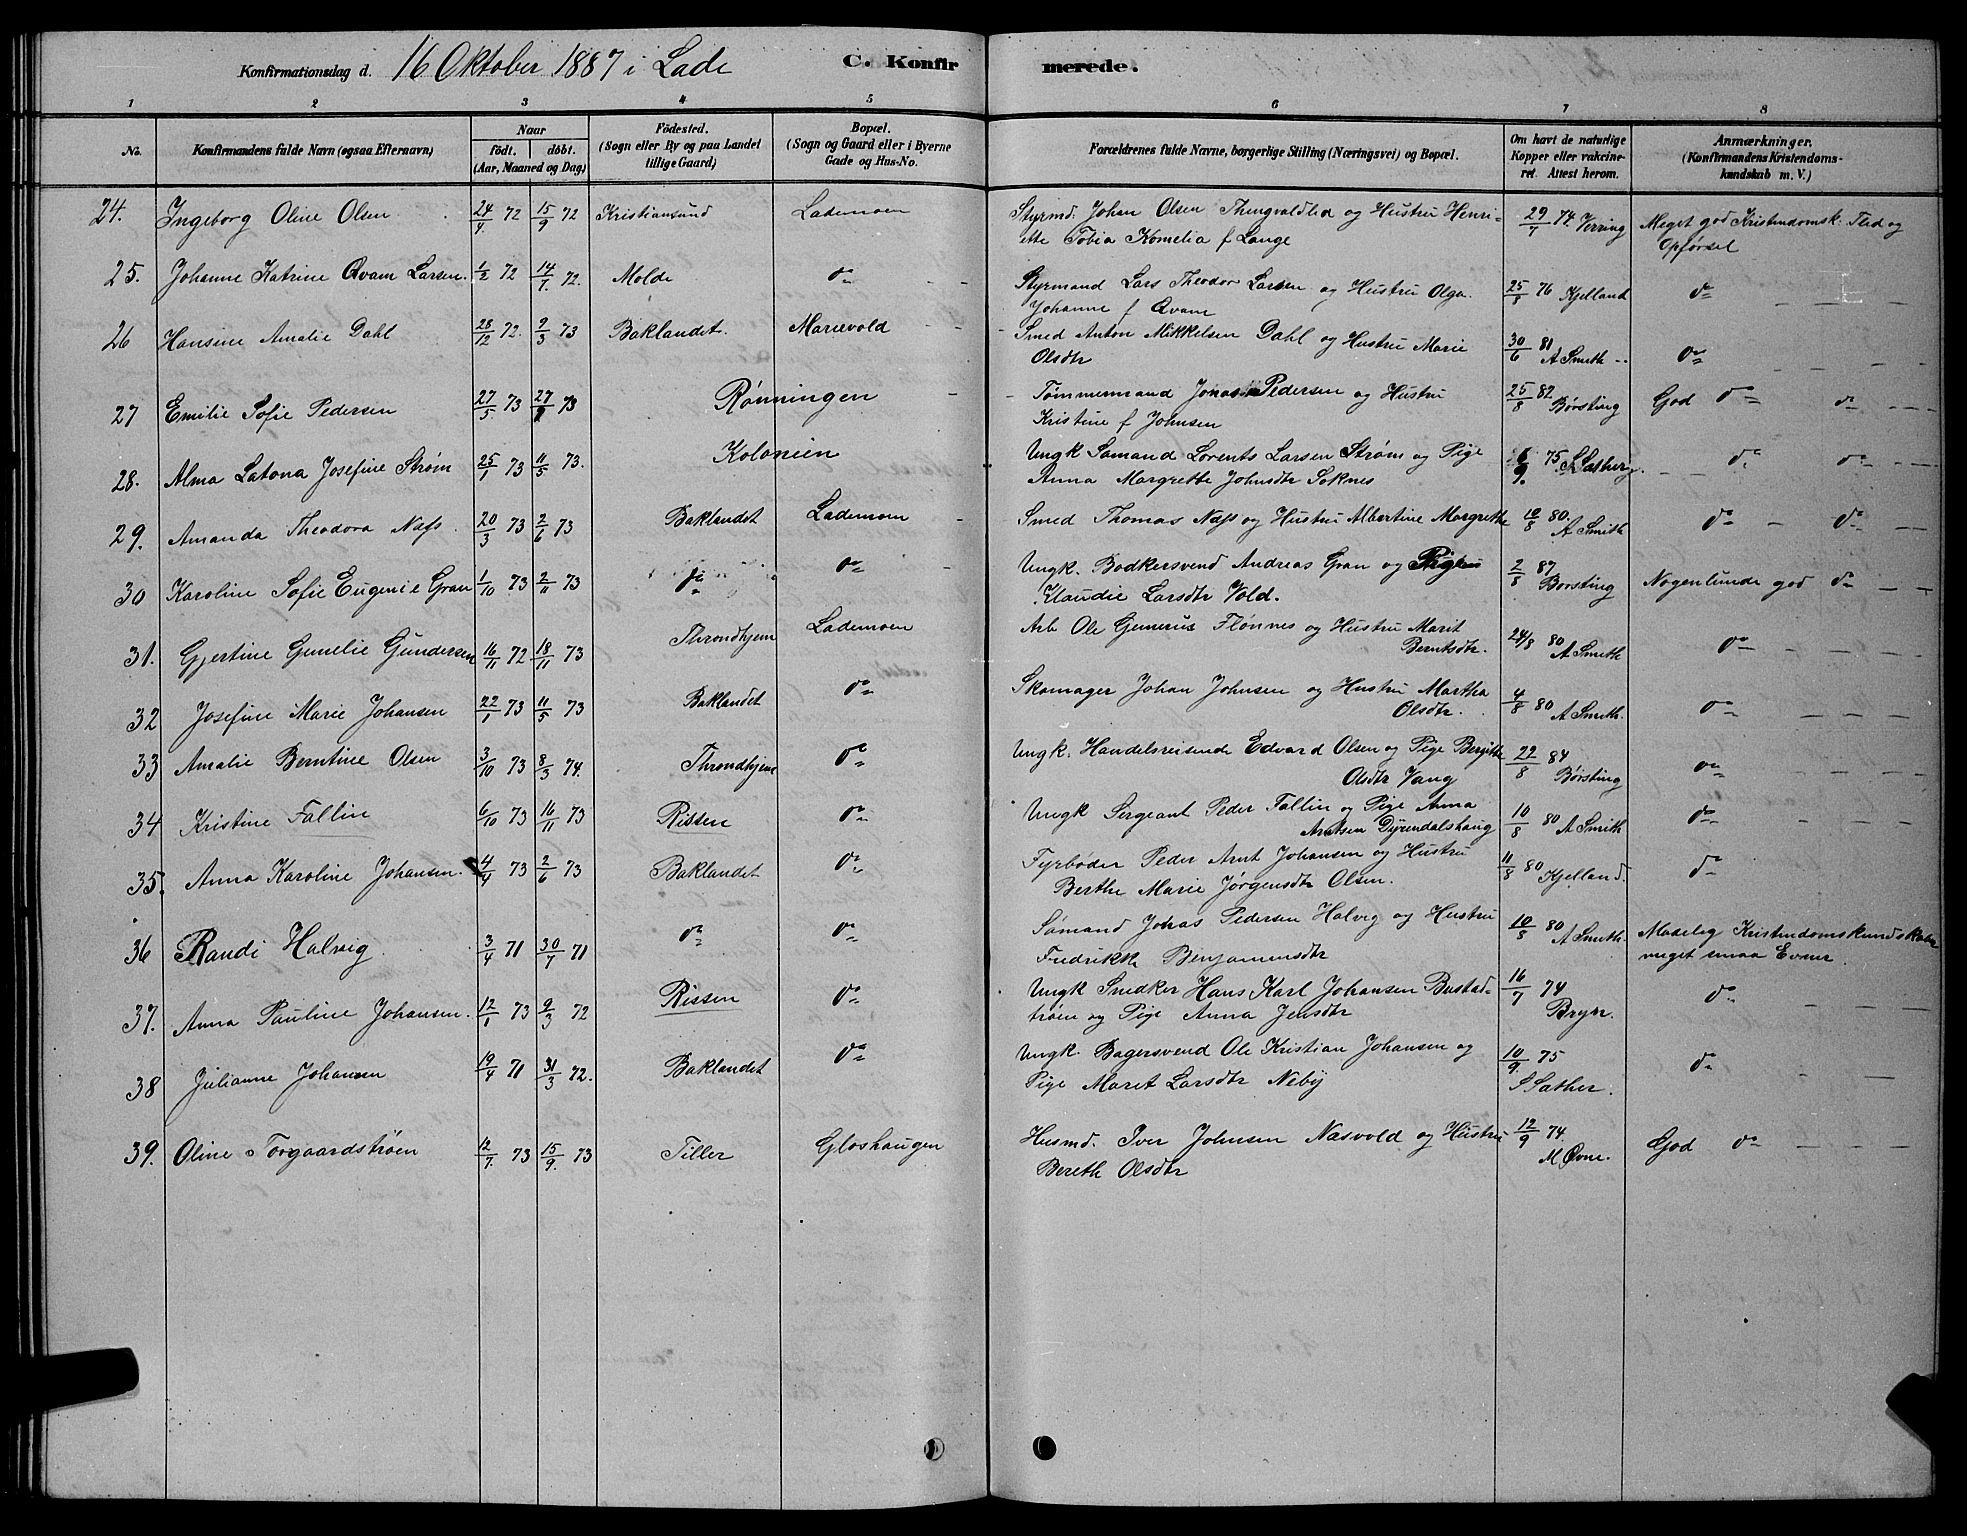 Konfirmationsdag d. 16 Oktober 1887 i Lade C. Konfirmerede.
1 2 3 4 5 6 7 8
No. Konfirmandens fulde Navn (ogsaa Efternavn) Naar födt. döbt. (Aar, Maaned og Dag) Födested. (Sogn eller By og paa Landet tillige Gaard) Bopæl. (Sogn og Gaard eller i Byerne Gade og Hus-No. Forældrenes fulde Navne, borgerlige Stilling (Næringsvei) og Bopæl. Om havt de naturlige Kopper eller vakcineret. Attest herom. Anmærkninger. (Konfirmandens Kristendomskundskab m. V.)
24. Ingeborg Oline Olsen 24/4 72 15/9 72 Kristiansund Lademoen Styrmd. Johan Olsen Thingvaldlid og Hustru Henri- 29/7 74. Verring Meget god Kristendomsk. Flid og
ette Tobia Kornelia f Lange Opförsel
25. Johanne Katrine Qvam Larsen. 1/2 72 14/7 72. Molde do Styrmand Lars Theodor Larsen og Hustru Olga 25/8 76 Kjelland do
Johanne f Qvam
26 Hansine Amalie Dahl 28/12 72. 9/3 73 Baklandet. Marievold Smed Anton Mikkelsen Dahl og Hustru Marie 30/6 81 A Smith do
Olsdtr
27 Emilie Sofie Pedersen 27/5 73 27/9 73 Rønningen Tømmermand Jonas Pedersen og Hustru 25/8 82 Börsting God do do
Kristine f Johnsen
28. Alma Latona Josefine Strøm 25/1 73 11/5 73. Kolonien Ungk Sømand Lorents Larsen Strøm og Pige 6/9. 75 S Sather do do
Anna Margrethe Johnsdtr Soknes
29. Amanda Theodora Næss 20/3 73 2/6 73 Baklandet Lademoen Smed Thomas Næss og Hustru Albertine Margrethe 10/8 80. A Smith do do
30 Karoline Sofie Eugenie Gran 1/10 73 2/11 73 do do Ungk. Bødkersvend Andreas Gran og Pige 2/8 87 Børsting Nogenlunde god do
Klaudie Larsdtr Vold.
31. Gjertine Gunelie Gundersen 16/11 72 18/11 73 Throndhjem Lademoen Arb Ole Gunerius Flønnes og Hustru Marit 24/8 80 A Smith do
Berntsdtr.
32 Josefine Marie Johansen 22/1 73 11/5 73 Baklandet do Skomager Johan Johnsen og Hustru Martha 4/8 80 A Smith. do
Olsdtr.
33 Amalie Berntine Olsen 3/10 73 8/3 74. Throndhjem do Ungk. Handelsreisende Edvard Olsen og Pige Bergitte 22/8 84 Børsting do
Olsdtr Vang
34 Kristine Fallin 6/10 73 16/11 73 Rissen do Ungk Sergeant Peder Fallin og Pige Anna 10/8 80 A Smith do
Arntsen Dyrendalshaug
35. Anna Karoline Johansen. 4/4 73 2/6 73 Baklandet do Fyrbøder Peder Arnt Johansen og Hustru 11/8 80 Kjelland. do
Berthe Marie Jörgensdtr Olsen.
36 Randi Halvig 3/4 71 30/7 71 do do Sømand Johas Pedersen Halvig og Hustru 10/8 80 A Smith. Maadelig Kristendomskundskaber
Fredrikke Benjaminsdtr meget smaa Evner.
37. Anna Pauline Johansen. 12/1 73 9/3 72 Rissen do Ungk Snedker Hans Karl Johansen Bustad- 16/7 74 Bryn. do
trøen og Pige Anna Jensdtr
38 Julianne Johansen 19/4 71 31/3 72. Baklandet do Ungk. Bagersvend Ole Kristian Johansen og 10/9. 75 S Sather. do
Pige Maret Larsdtr Neby
39. Oline Torgaardstrøen 12/7. 73 15/9. 73 Tiller Gloshaugen Husmd. Iver Johnsen Nasvold og Hustru 12/9 74. M Qvne. God do
Bereth Olsdtr